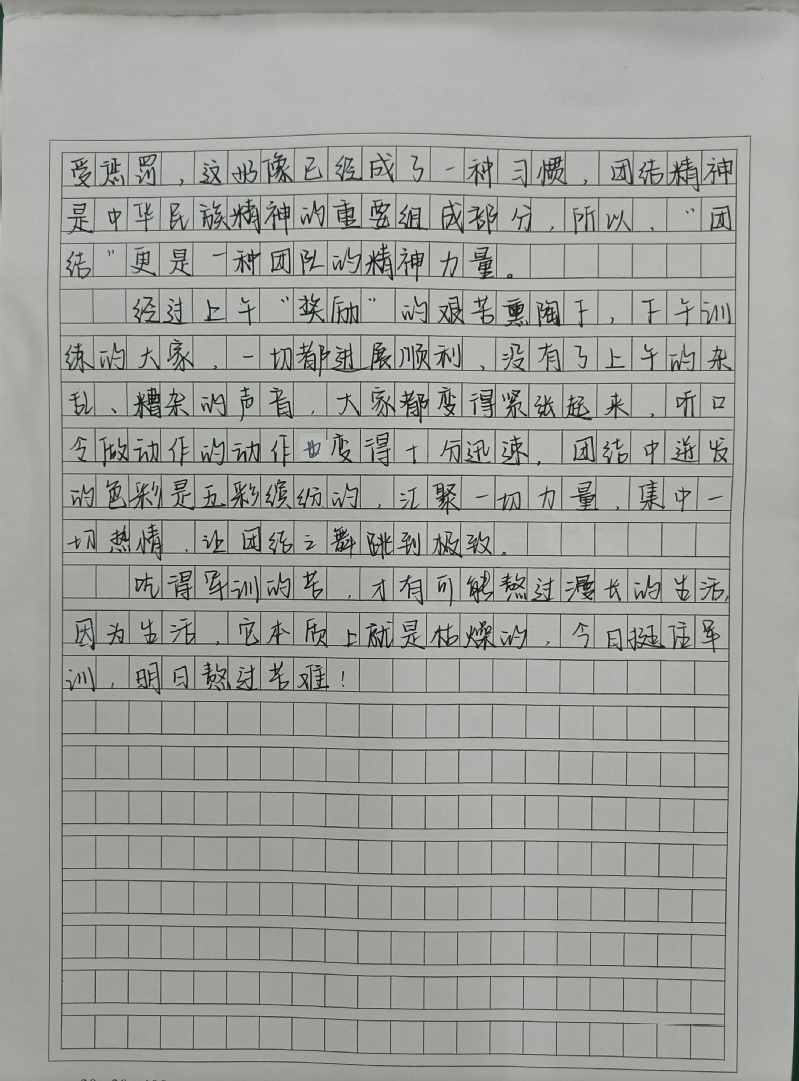 受惩罚，这好像已经成了一种习惯，团结精神
是中华民族精神的重要组成部分，所以，“团
结”更是一种团队的精神力量。
经过上午“奖励”的艰苦熏陶下，下午训
练的大家，一切都进展顺利，没有了上午的杂
乱、糟杂的声音，大家都变得紧张起来，听口
令做动作的动作也变得十分迅速，团结中迸发
的色彩是五彩缤纷的，汇聚一切力量，集中一
切热情，让团结之舞跳到极致。
吃得军训的苦，才有可能熬过漫长的生活，
因为生活，它本质上就是枯燥的，今日挺住军
训，明日熬过苦难！